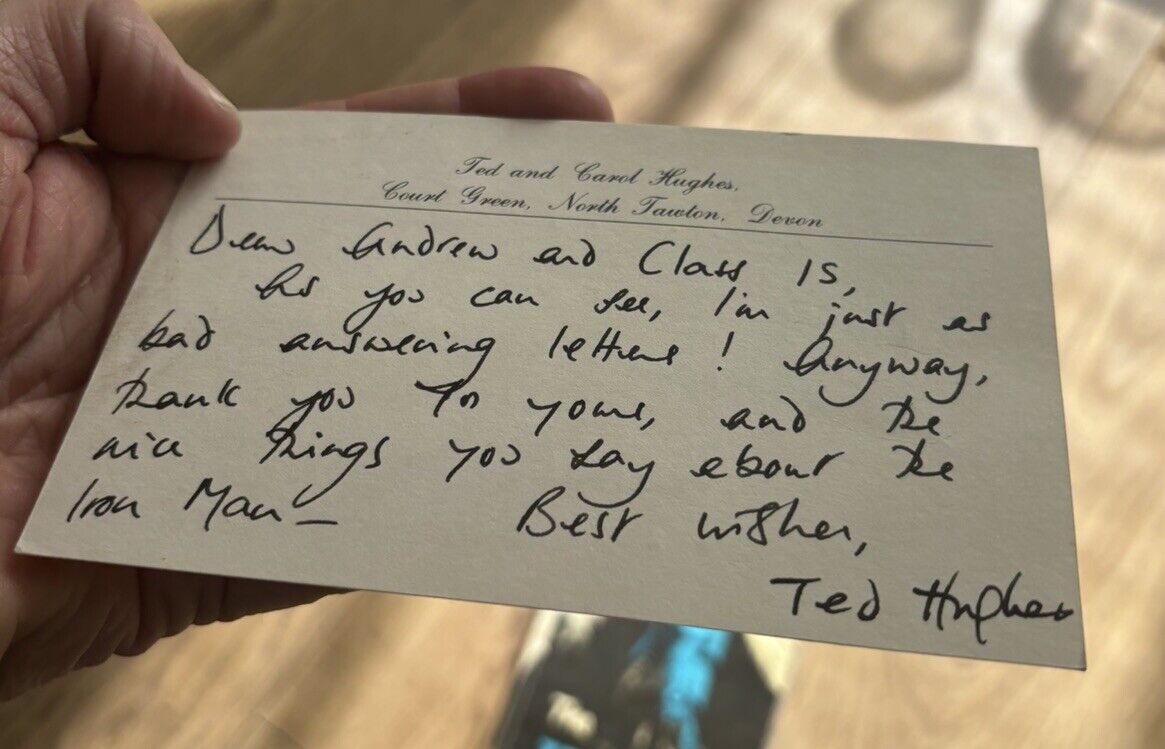 Ted and Carol Hughes,
Court Green, North Tawton, Devon
Dear Andrew and Class 1S,
As you can see, I'm just as
bad answering letters! Anyway,
thank you for yours, and the
nice things you say about the
Iron Man— Best wishes,
Ted Hughes